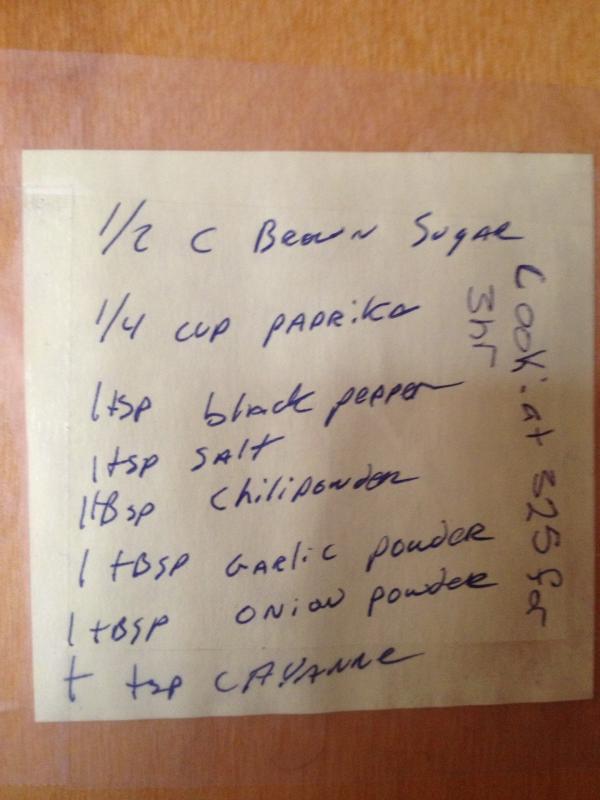 1/2 C Brown Sugar
1/4 cup paprika
1 tsp black pepper
1 tsp Salt
1 tBsp Chili powder
1 tBSP Garlic powder
1 tBSP Onion powder
1 tsp CAYANNE
Cook at 325 for
3hr